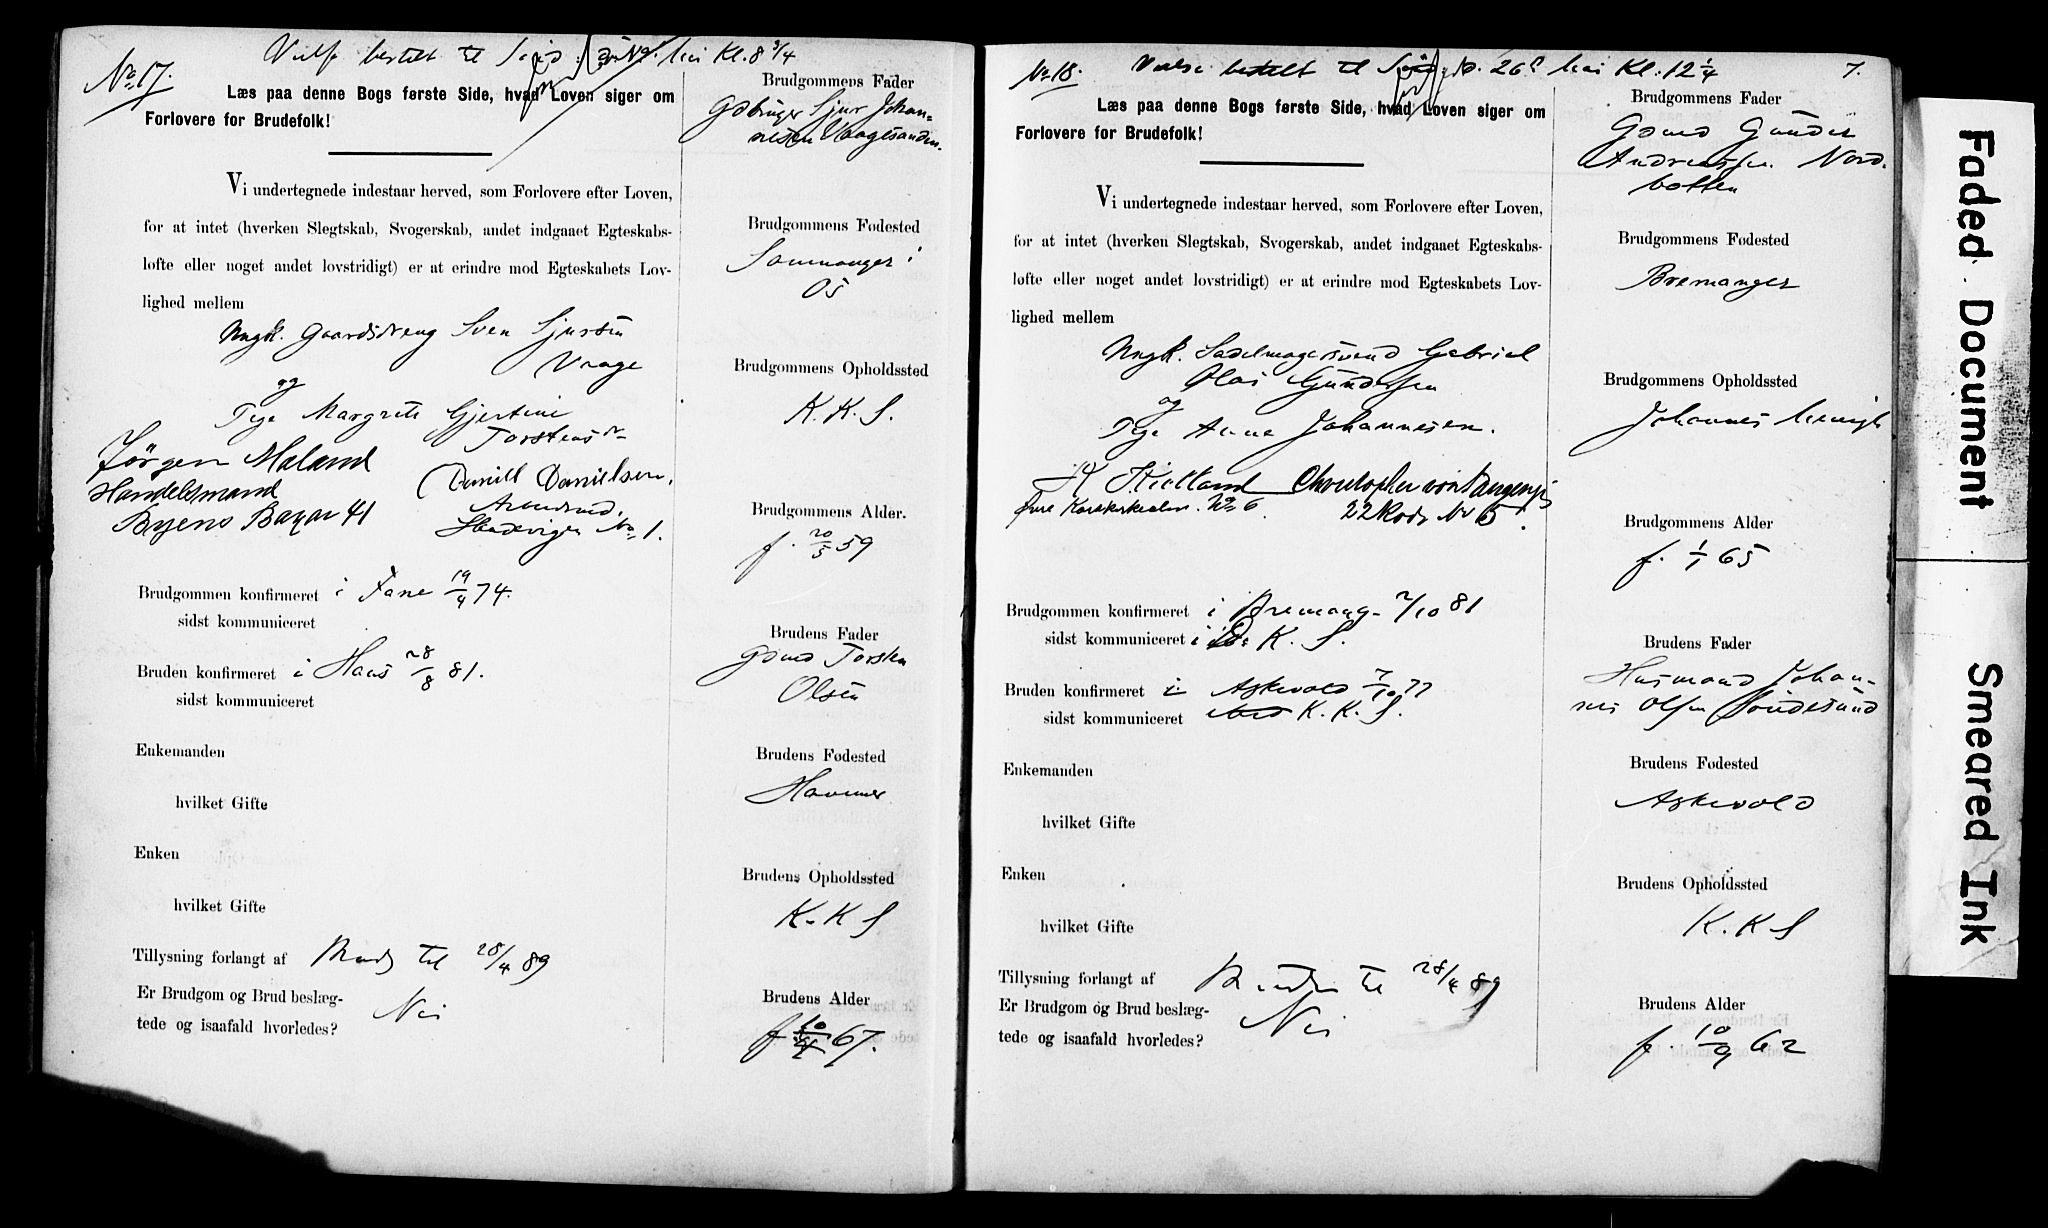 No 17.
bestilt til Kl. 8 3/4
Læs paa denne Bogs første Side, hvad Loven siger om
Forlovere for Brudefolk!
Vi undertegnede indestaar herved, som Forlovere efter Loven,
for at intet (hverken Slegtskab, Svogerskab, andet indgaaet Egteskabs-
løfte eller noget andet lovstridigt) er at erindre mod Egteskabets Lov-
lighed mellem
Ungk. Gaardsdreng Sven Sjursen
Vaage
og
Pige Margrete Gjertine
Torstensdr
Jörgen Maland
Handelsmand
Byens Bazar 41
Daniel Danielsen,
No 1.
Brudgommen konfirmeret i Fane 19/4 74.
sidst kommuniceret
Bruden konfirmeret i Haus 28/8 81.
sidst kommuniceret
Enkemanden
hvilket Gifte
Enken
hvilket Gifte
Tillysning forlangt af Brudg til 28/4 89
Er Brudgom og Brud beslæg-
tede og isaafald hvorledes?
Nei
Brudgommens Fader
Gbruger Sjur Johan-
nesen Vaagesanden.
Brudgommens Fødested
Sammanger i
Os
Brudgommens Opholdssted
K. K. S.
Brudgommens Alder.
f. 20/5 59
Brudens Fader
Gdmd Torsten
Olsen
Brudens Fødested
Hammer
Brudens Opholdssted
K. K S
Brudens Alder
f 10/4 67.
No 18.
bestilt til 26de Mai Kl. 12 1/4
7.
Læs paa denne Bogs første Side, hvad Loven siger om
Forlovere for Brudefolk!
Vi undertegnede indestaar herved, som Forlovere efter Loven,
for at intet (hverken Slegtskab, Svogerskab, andet indgaaet Egteskabs-
løfte eller noget andet lovstridigt) er at erindre mod Egteskabets Lov-
lighed mellem
Ungk. Sadelmagersvend Gabriel
Olai Gundersen
og
Pige Anne Johannesen.
Kielland
No 6.
Christopher von Tangen
22 Rode No 5.
Brudgommen konfirmeret i Bremang. 2/10 81
sidst kommuniceret i K. S.
Bruden konfirmeret i Askevold 7/10 77
sidst kommuniceret K. K. S.
Enkemanden
hvilket Gifte
Enken
hvilket Gifte
Tillysning forlangt af Brudg. til 28/4 89
Er Brudgom og Brud beslæg-
tede og isaafald hvorledes?
Nei
Brudgommens Fader
Gdmd Gunder
Andreassen Nord-
botten
Brudgommens Fødested
Bremanger
Brudgommens Opholdssted
Johannes Menigh
Brudgommens Alder
f. 1/1 65
Brudens Fader
Husmand Johan-
nes Olsen
Brudens Fødested
Askevold
Brudens Opholdssted
K. K S
Brudens Alder
f. 10/9 62
Faded Document
Smeared Ink